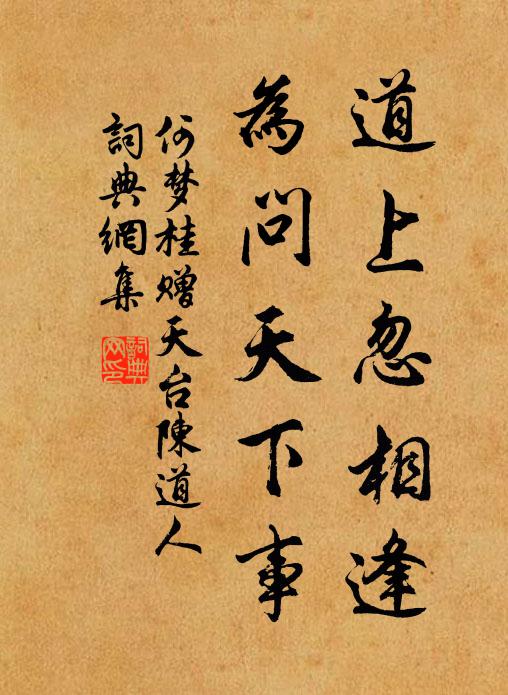 道上忽相逢
為問天下事
何梦桂赠天台陳道人
詞典網集
詞典网印